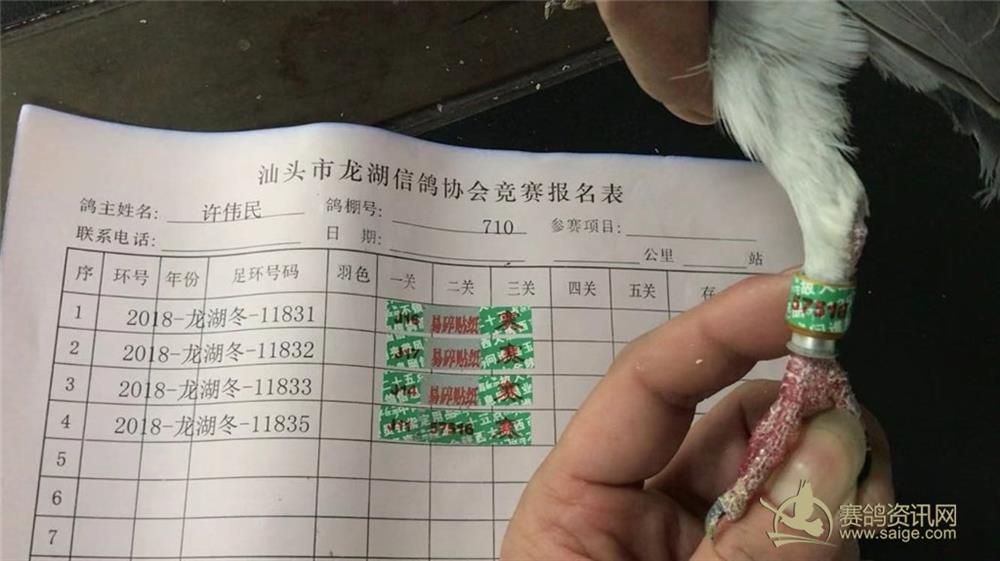 汕头市龙湖信鸽协会竞赛报名表
鸽主姓名: 许伟民 鸽棚号: 710 参赛项目:
联系电话: 日 期: 公里 站
序 环号 年份 足环号码 羽色 一关 二关 三关 四关 五关 存
1 2018-龙湖冬-11831 J16 易碎贴纸 赛
2 2018-龙湖冬-11832 J17 易碎贴纸 赛
3 2018-龙湖冬-11833 J14 易碎贴纸 赛
4 2018-龙湖冬-11835 J11 57516 赛
5
6
7
57516
赛鸽资讯网
www.saige.com